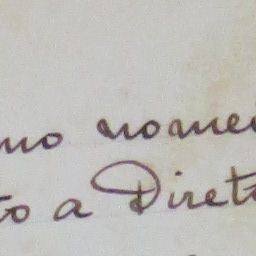 mo nomei
to a Direto